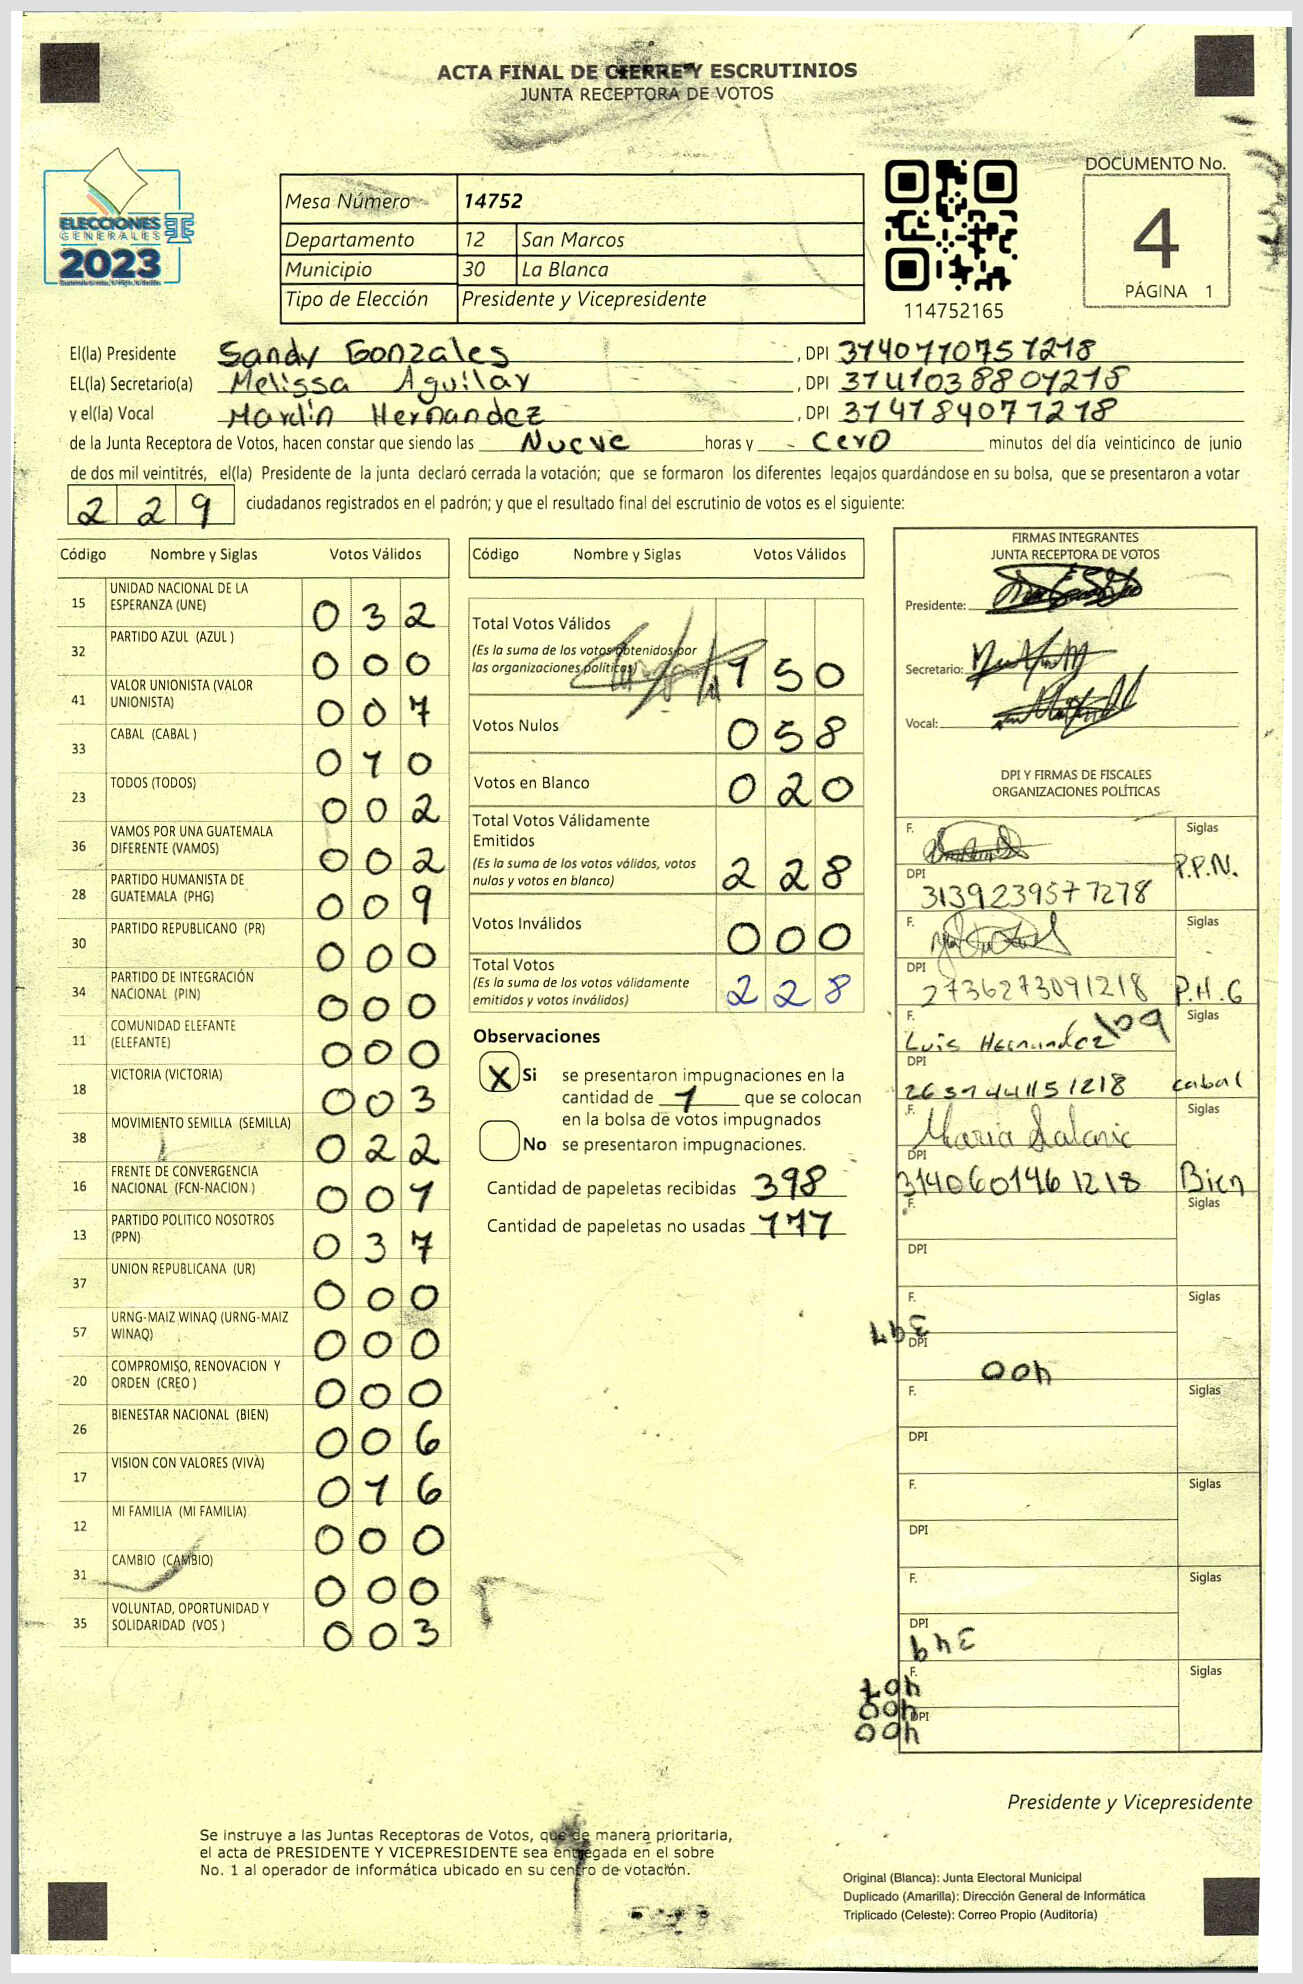 ACTA FINAL DE CIERRE Y ESCRUTINIOS
JUNTA RECEPTORA DE VOTOS
ELECCIONES
GENERALES
2023
Mesa Número 14752
Departamento 12 San Marcos
Municipio 30 La Blanca
Tipo de Elección Presidente y Vicepresidente
114752165
DOCUMENTO No.
4
PÁGINA 1
El(la) Presidente Sandy Gonzales, DPI 3140710751218
EL(la) Secretario(a) Melissa Aguilar, DPI 3141038801218
y el(la) Vocal Mardin Hernandez, DPI 3141784071218
de la Junta Receptora de Votos, hacen constar que siendo las Nueve horas y cero minutos del día veinticinco de junio
de dos mil veintitrés, el(la) Presidente de la junta declaró cerrada la votación; que se formaron los diferentes legajos guardándose en su bolsa, que se presentaron a votar
229 ciudadanos registrados en el padrón; y que el resultado final del escrutinio de votos es el siguiente:
Código Nombre y Siglas Votos Válidos
15 UNIDAD NACIONAL DE LA ESPERANZA (UNE) 032
32 PARTIDO AZUL (AZUL ) 000
41 VALOR UNIONISTA (VALOR UNIONISTA) 007
33 CABAL (CABAL ) 010
23 TODOS (TODOS) 002
36 VAMOS POR UNA GUATEMALA DIFERENTE (VAMOS) 002
28 PARTIDO HUMANISTA DE GUATEMALA (PHG) 009
30 PARTIDO REPUBLICANO (PR) 000
34 PARTIDO DE INTEGRACIÓN NACIONAL (PIN) 000
11 COMUNIDAD ELEFANTE (ELEFANTE) 000
18 VICTORIA (VICTORIA) 003
38 MOVIMIENTO SEMILLA (SEMILLA) 022
16 FRENTE DE CONVERGENCIA NACIONAL (FCN-NACION ) 001
13 PARTIDO POLITICO NOSOTROS (PPN) 037
37 UNION REPUBLICANA (UR) 000
57 URNG-MAIZ WINAQ (URNG-MAIZ WINAQ) 000
20 COMPROMISO, RENOVACION Y ORDEN (CREO ) 000
26 BIENESTAR NACIONAL (BIEN) 006
17 VISION CON VALORES (VIVA) 016
12 MI FAMILIA (MI FAMILIA) 000
31 CAMBIO (CAMBIO) 000
35 VOLUNTAD, OPORTUNIDAD Y SOLIDARIDAD (VOS ) 003
Código Nombre y Siglas Votos Válidos
Total Votos Válidos
(Es la suma de los votos obtenidos por
las organizaciones políticas) 150
Votos Nulos 058
Votos en Blanco 020
Total Votos Válidamente
Emitidos
(Es la suma de los votos válidos, votos
nulos y votos en blanco) 228
Votos Inválidos 000
Total Votos
(Es la suma de los votos válidamente
emitidos y votos inválidos) 228
Observaciones
X Si se presentaron impugnaciones en la
cantidad de 1 que se colocan
en la bolsa de votos impugnados
No se presentaron impugnaciones.
Cantidad de papeletas recibidas 398
Cantidad de papeletas no usadas 171
FIRMAS INTEGRANTES
JUNTA RECEPTORA DE VOTOS
Presidente:
Secretario:
Vocal:
DPI Y FIRMAS DE FISCALES
ORGANIZACIONES POLÍTICAS
F. Siglas
P.P.N.
DPI
3139239571218
F. Siglas
DPI
2736273091218 P.H.G
F. Siglas
Luis Hernandez
DPI
2637441151218 cabal
F. Siglas
Maria
DPI
3140601461218 Bien
F. Siglas
DPI
F. Siglas
397
DPI
400
F. Siglas
DPI
F. Siglas
DPI
F. Siglas
DPI
349
F. Siglas
401
400
DPI
400
Presidente y Vicepresidente
Se instruye a las Juntas Receptoras de Votos, que de manera prioritaria,
el acta de PRESIDENTE Y VICEPRESIDENTE sea entregada en el sobre
No. 1 al operador de informática ubicado en su centro de votación.
Original (Blanca): Junta Electoral Municipal
Duplicado (Amarilla): Dirección General de Informática
Triplicado (Celeste): Correo Propio (Auditoría)